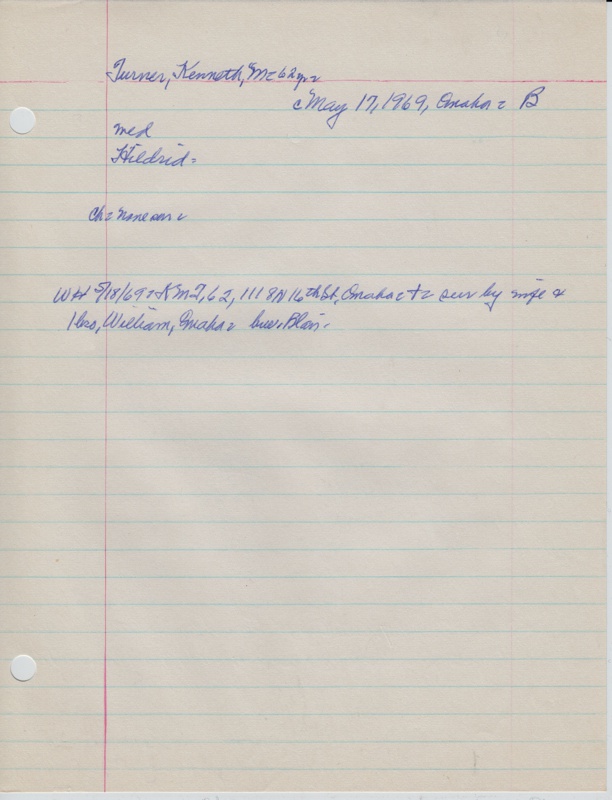 Turner, Kenneth, M - 62 yr -
c May 17, 1969, Omaha - B
med
Hildrid -
Ch - None on -
WH 5/18/69 - KMT, 62, 111 8 N 16th St, Omaha - + - sur by wife &
1 bro, William, Omaha - bur. Blair.